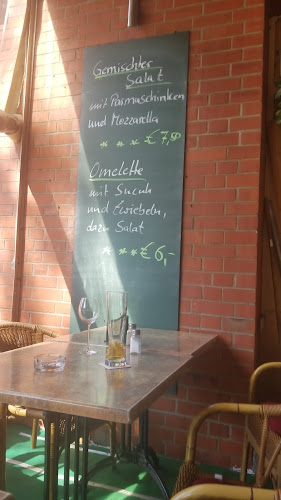 Gemischter
Salat
mit Parmaschinken
und Mozzarella
* * * € 7,50
Omelette
mit Sucuk
und Zwiebeln,
dazu Salat
* * * € 6,-